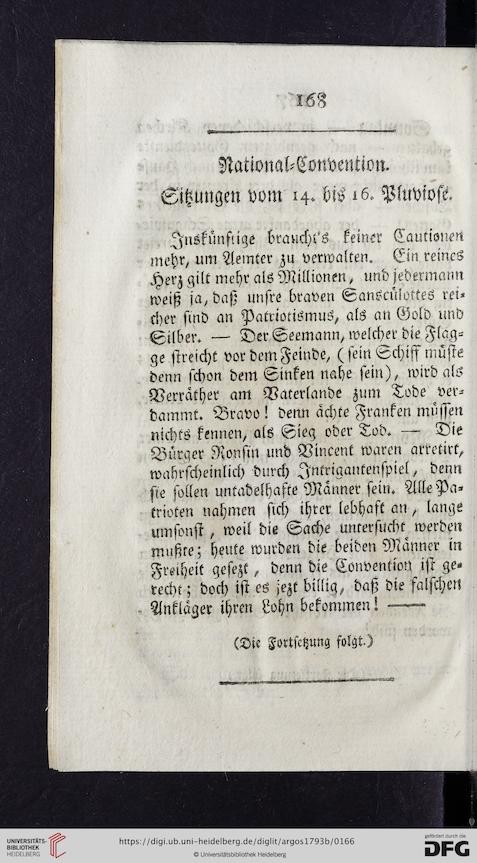 168
National-Convention.
Sitzungen vom 14. bis 16. Pluviose.
Inskünftige braucht's keiner Cautionen
mehr, um Aemter zu verwalten. Ein reines
Herz gilt mehr als Millionen, und jedermann
weiß ja, daß unsre braven Sanscülottes rei-
cher sind an Patriotismus, als an Gold und
Silber. — Der Seemann, welcher die Flag-
ge streicht vor dem Feinde, (sein Schiff müßte
denn schon dem Sinken nahe sein), wird als
Verräther am Vaterlande zum Tode ver-
dammt. Bravo! denn ächte Franken müssen
nichts kennen, als Sieg oder Tod. — Die
Bürger Ronsin und Vincent waren arretirt,
wahrscheinlich durch Intrigantenspiel, denn
sie sollen untadelhafte Männer sein. Alle Pa-
trioten nahmen sich ihrer lebhaft an, lange
umsonst, weil die Sache untersucht werden
mußte; heute wurden die beiden Männer in
Freiheit gesezt, denn die Convention ist ge-
recht; doch ist es jezt billig, daß die falschen
Ankläger ihren Lohn bekommen! —
(Die Fortsetzung folgt.)
UNIVERSITÄTS-
BIBLIOTHEK
HEIDELBERG
https://digi.ub.uni-heidelberg.de/diglit/argos1793b/0166
© Universitätsbibliothek Heidelberg
gefördert durch die
DFG